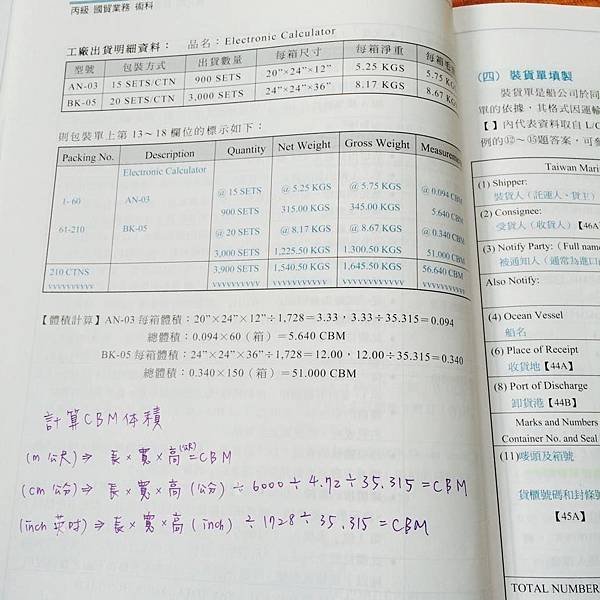 丙級 國貿業務 術科
工廠出貨明細資料： 品名：Electronic Calculator
型號 包裝方式 出貨數量 每箱尺寸 每箱淨重
AN-03 15 SETS/CTN 900 SETS 20”×24”×12” 5.25 KGS 5.75 KGS
BK-05 20 SETS/CTN 3,000 SETS 24”×24”×36” 8.17 KGS 8.67
則包裝單上第 13～18 欄位的標示如下：
Packing No. Description Quantity Net Weight Gross Weight Measurement
Electronic Calculator
@ 15 SETS @ 5.25 KGS @ 5.75 KGS @ 0.094 CBM
1- 60 AN-03
900 SETS 315.00 KGS 345.00 KGS 5.640 CBM
61-210 BK-05 @ 20 SETS @ 8.17 KGS @ 8.67 KGS @ 0.340 CBM
3,000 SETS 1,225.50 KGS 1.300.50 KGS 51.000 CBM
210 CTNS 3,900 SETS 1,540.50 KGS 1,645.50 KGS 56.640 CBM
vvvvvvvvvv vvvvvvvvvv vvvvvvvvvvv vvvvvvvvvvv vvvvvvvvvv
【體積計算】AN-03 每箱體積：20”×24”×12”÷1,728＝3.33，3.33÷35.315＝0.094
總體積：0.094×60（箱）＝5.640 CBM
BK-05 每箱體積：24”×24”×36”÷1,728＝12.00，12.00÷35.315＝0.340
總體積：0.340×150（箱）＝51.000 CBM
計算CBM体積
(m 公尺) ⇒ 長×寬×高(公尺)=CBM
(cm 公分) ⇒ 長×寬×高(公分)÷6000÷4.72÷35.315=CBM
(inch 英吋) ⇒ 長×寬×高(inch)÷1728÷35.315=CBM
(四) 裝貨單填製
裝貨單是船公司於同
單的依據，其格式因運輸
【 】內代表資料取自 L/C
例的⑫～⑮題答案，可參
Taiwan Mari
(1) Shipper:
裝貨人（託運人、貨主）
(2) Consignee:
受貨人（收貨人）【46A
(3) Notify Party: (Full name
被通知人（通常為進口
Also Notify:
(4) Ocean Vessel
船名
(6) Place of Receipt
收貨地【44A】
(8) Port of Discharge
卸貨港【44B】
Marks and Numbers
Container No. and Seal
(11)嘜頭及箱號
貨櫃號碼和封條號
【45A】
TOTAL NUMBER